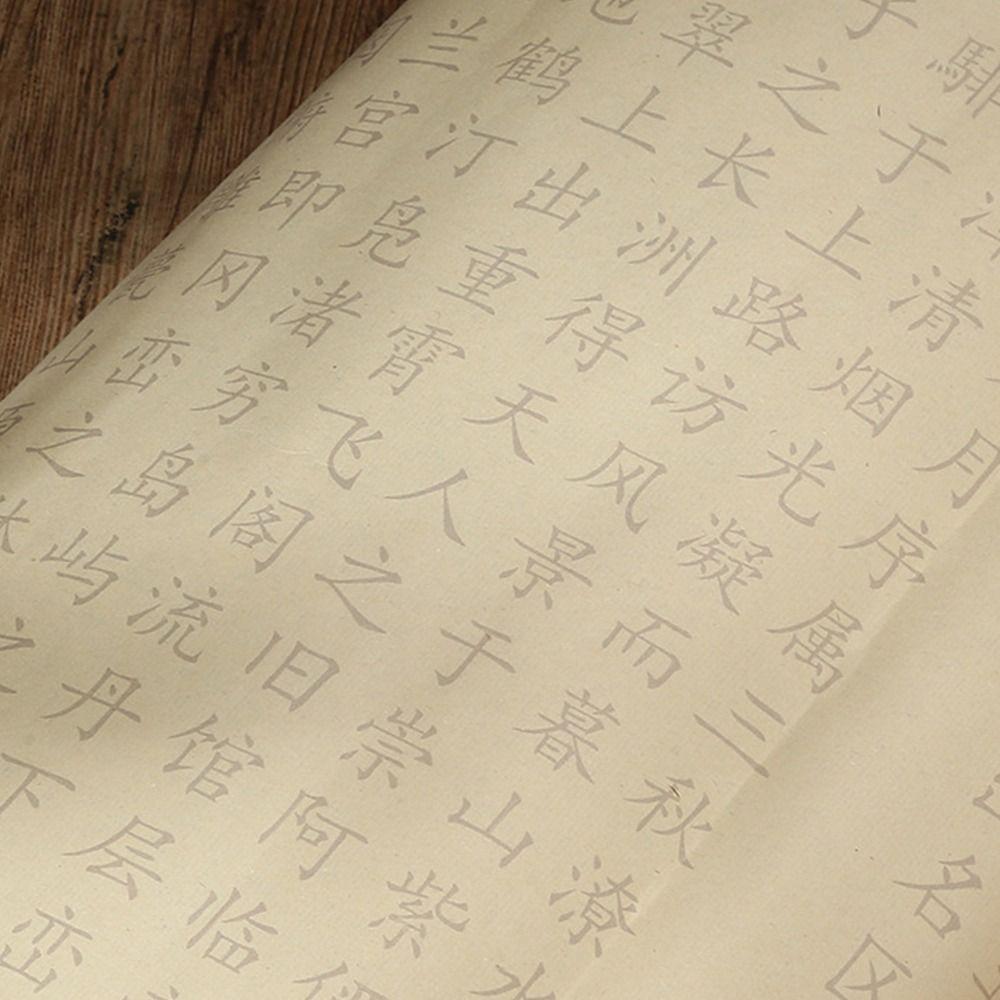 名区
月序属三秋潦水
清烟光凝而暮山紫俨
騑于上路访风景于崇阿临
子之长洲得天人之旧馆层峦
翠上出重霄飞阁流丹下
地鹤汀凫渚穷岛屿之
兰宫即冈峦之体
闼俯雕甍山原